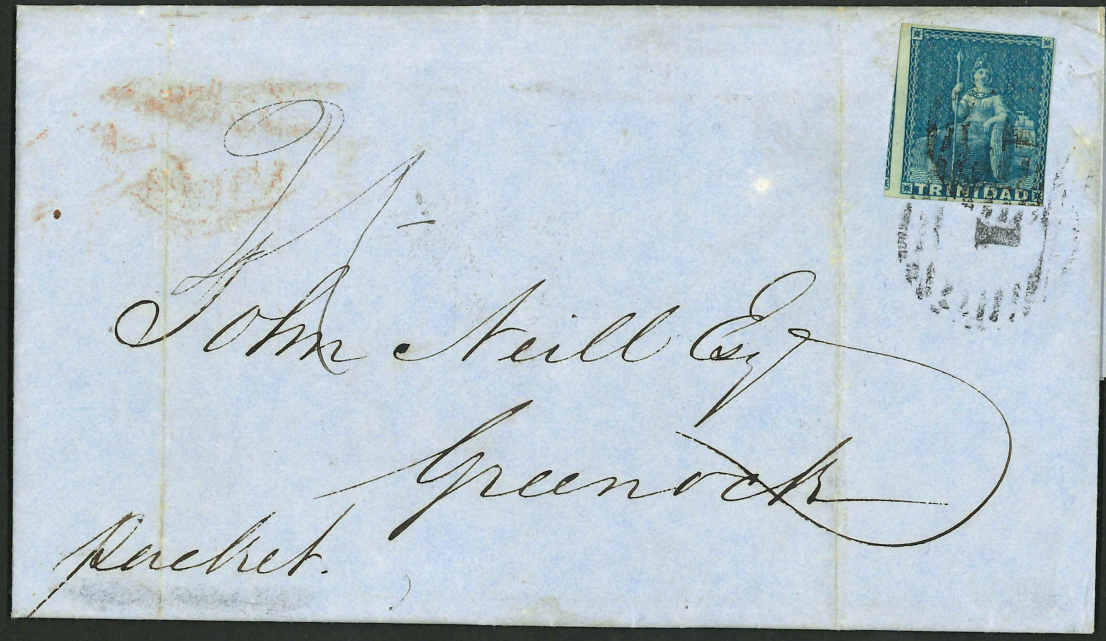 TRINIDAD
1
John Neill Esq
Greenock
Packet.